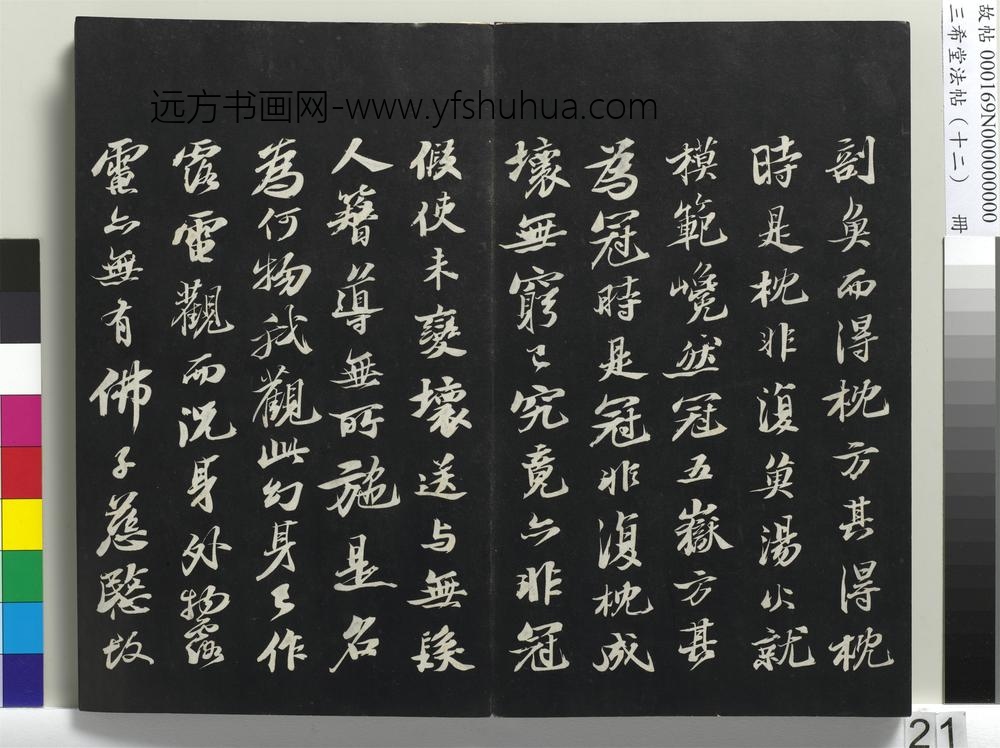 故帖 000169N000000000
三希堂法帖（十二） 冊
远方书画网-www.yfshuhua.com
剖魚而得枕方其得枕
時是枕非復魚湯火就
模範巉然冠五嶽方其
為冠時是冠非復枕成
壞無窮已究竟亦非冠
假使未變壞送與無髮
人簪導無所施是名
為何物我觀此幻身已作
露電觀而況身外物露
電亦無有佛子慈愍故
21